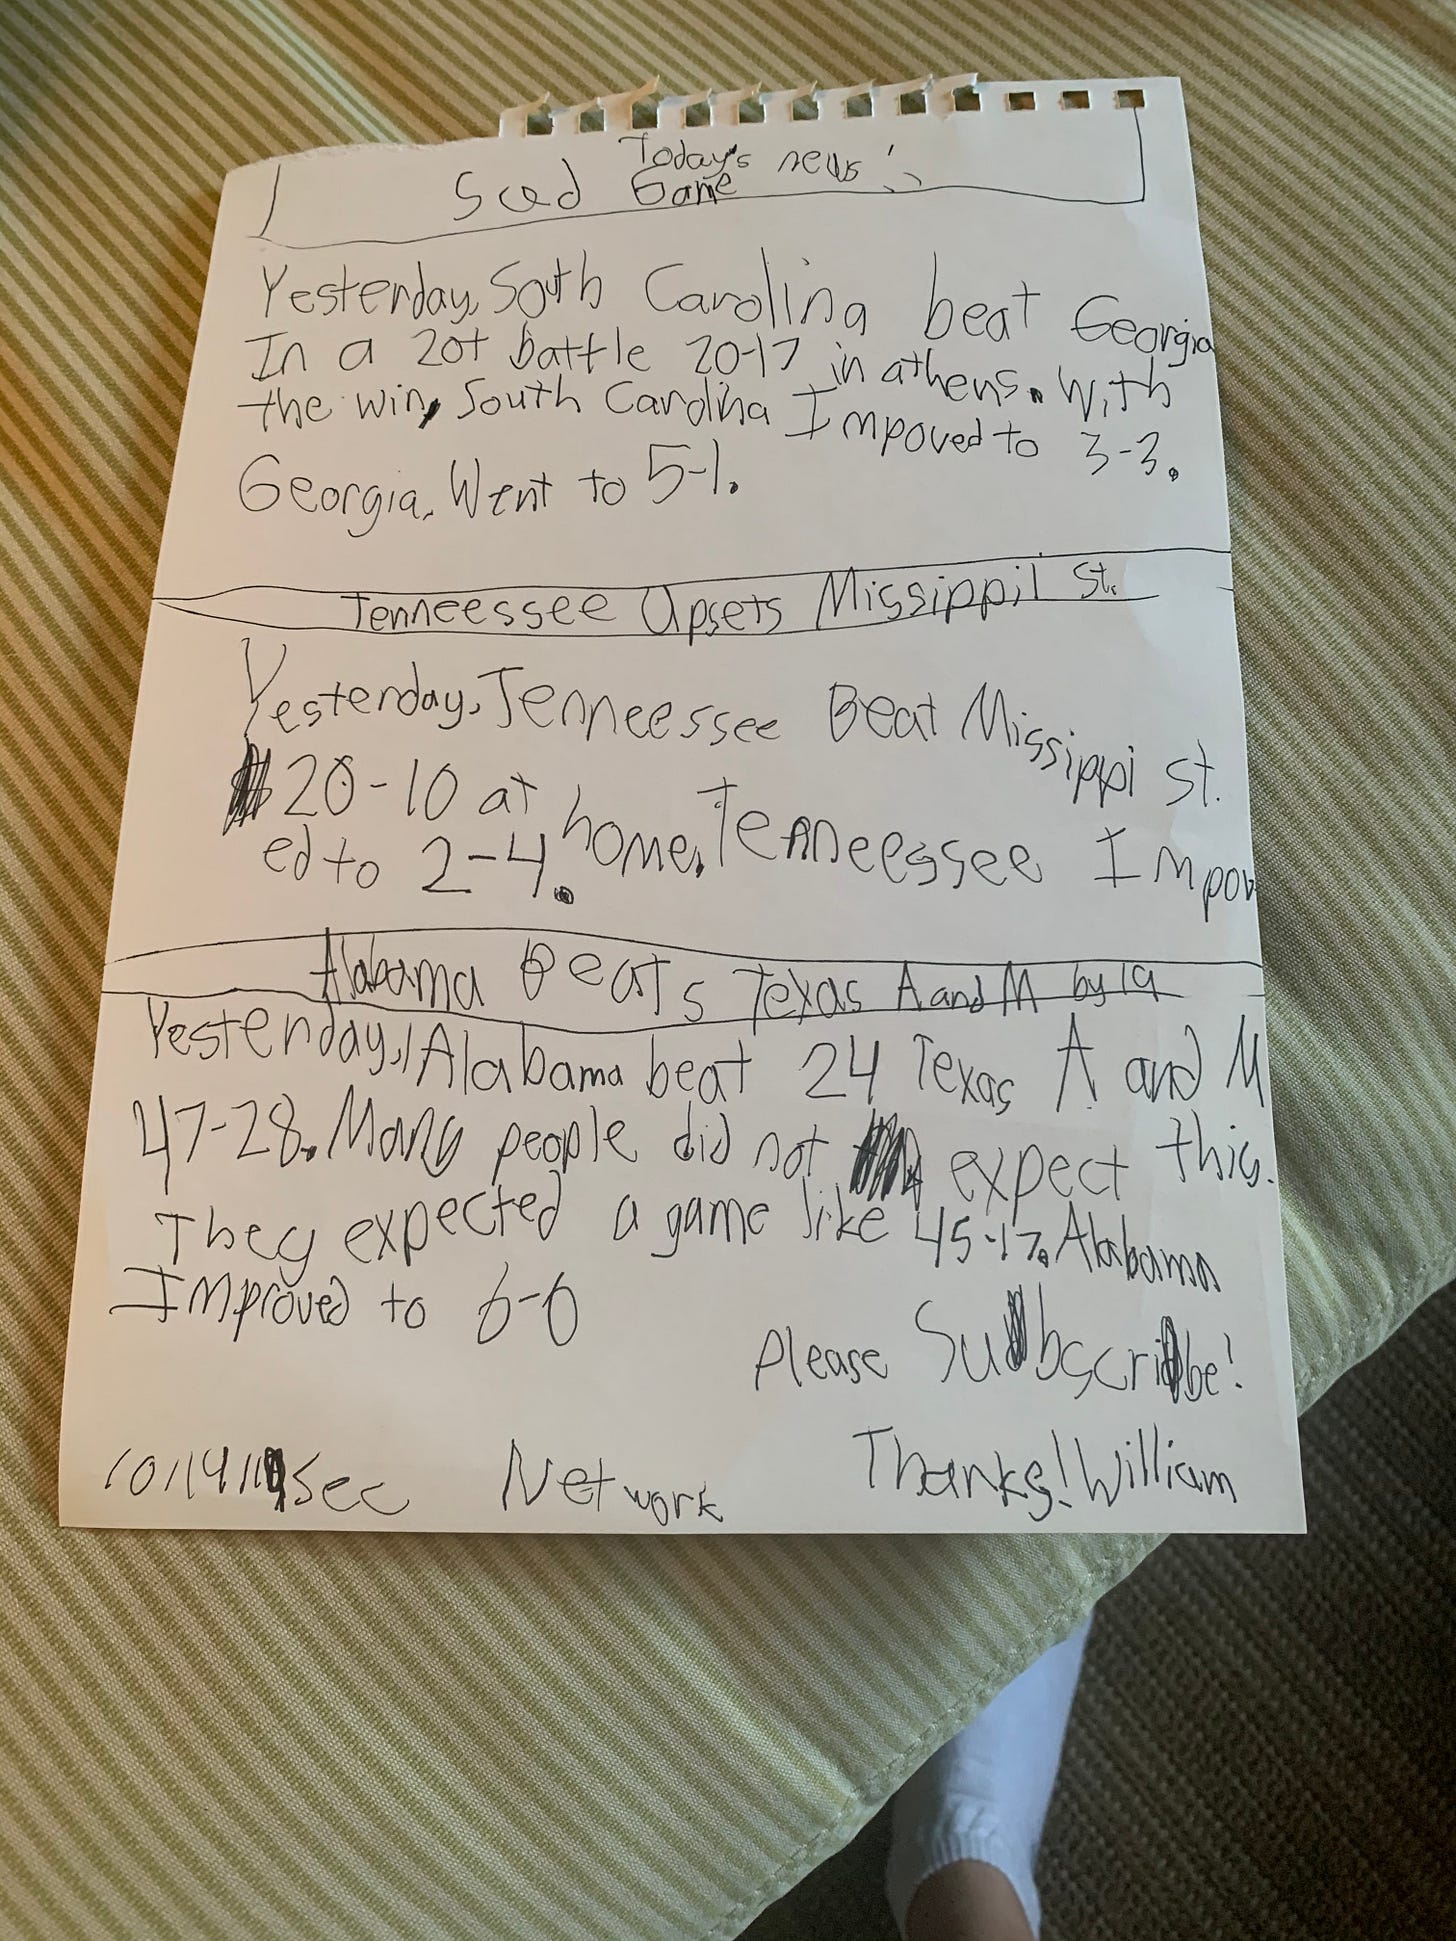 Today's news!
Game
Yesterday, South Carolina beat Georgia
In a 2ot battle 20-17 in athens. With
the win, South Carolina Impoved to 3-3.
Georgia, Went to 5-1.
Tenneessee Upsets Missippii St.
Yesterday, Tenneessee Beat Missippi St.
20-10 at home. Tenneessee Impov
ed to 2-4.
Alabama Beats Texas A and M by 19
Yesterday, Alabama beat 24 Texas A and M
47-28. Many people did not expect this.
They expected a game like 45-17. Alabama
Improved to 6-0
Please Subscribe!
10/14/19 Sec Network Thanks! William